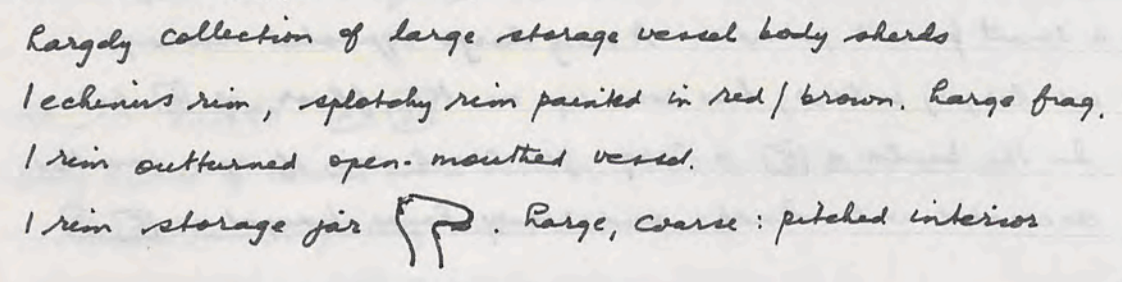 Largely collection of large storage vessel body sherds
1 echinus rim, splotchy rim painted in red/brown. Large frag.
1 rim outturned open-mouthed vessel.
1 rim storage jar . Large, coarse: pitched interior